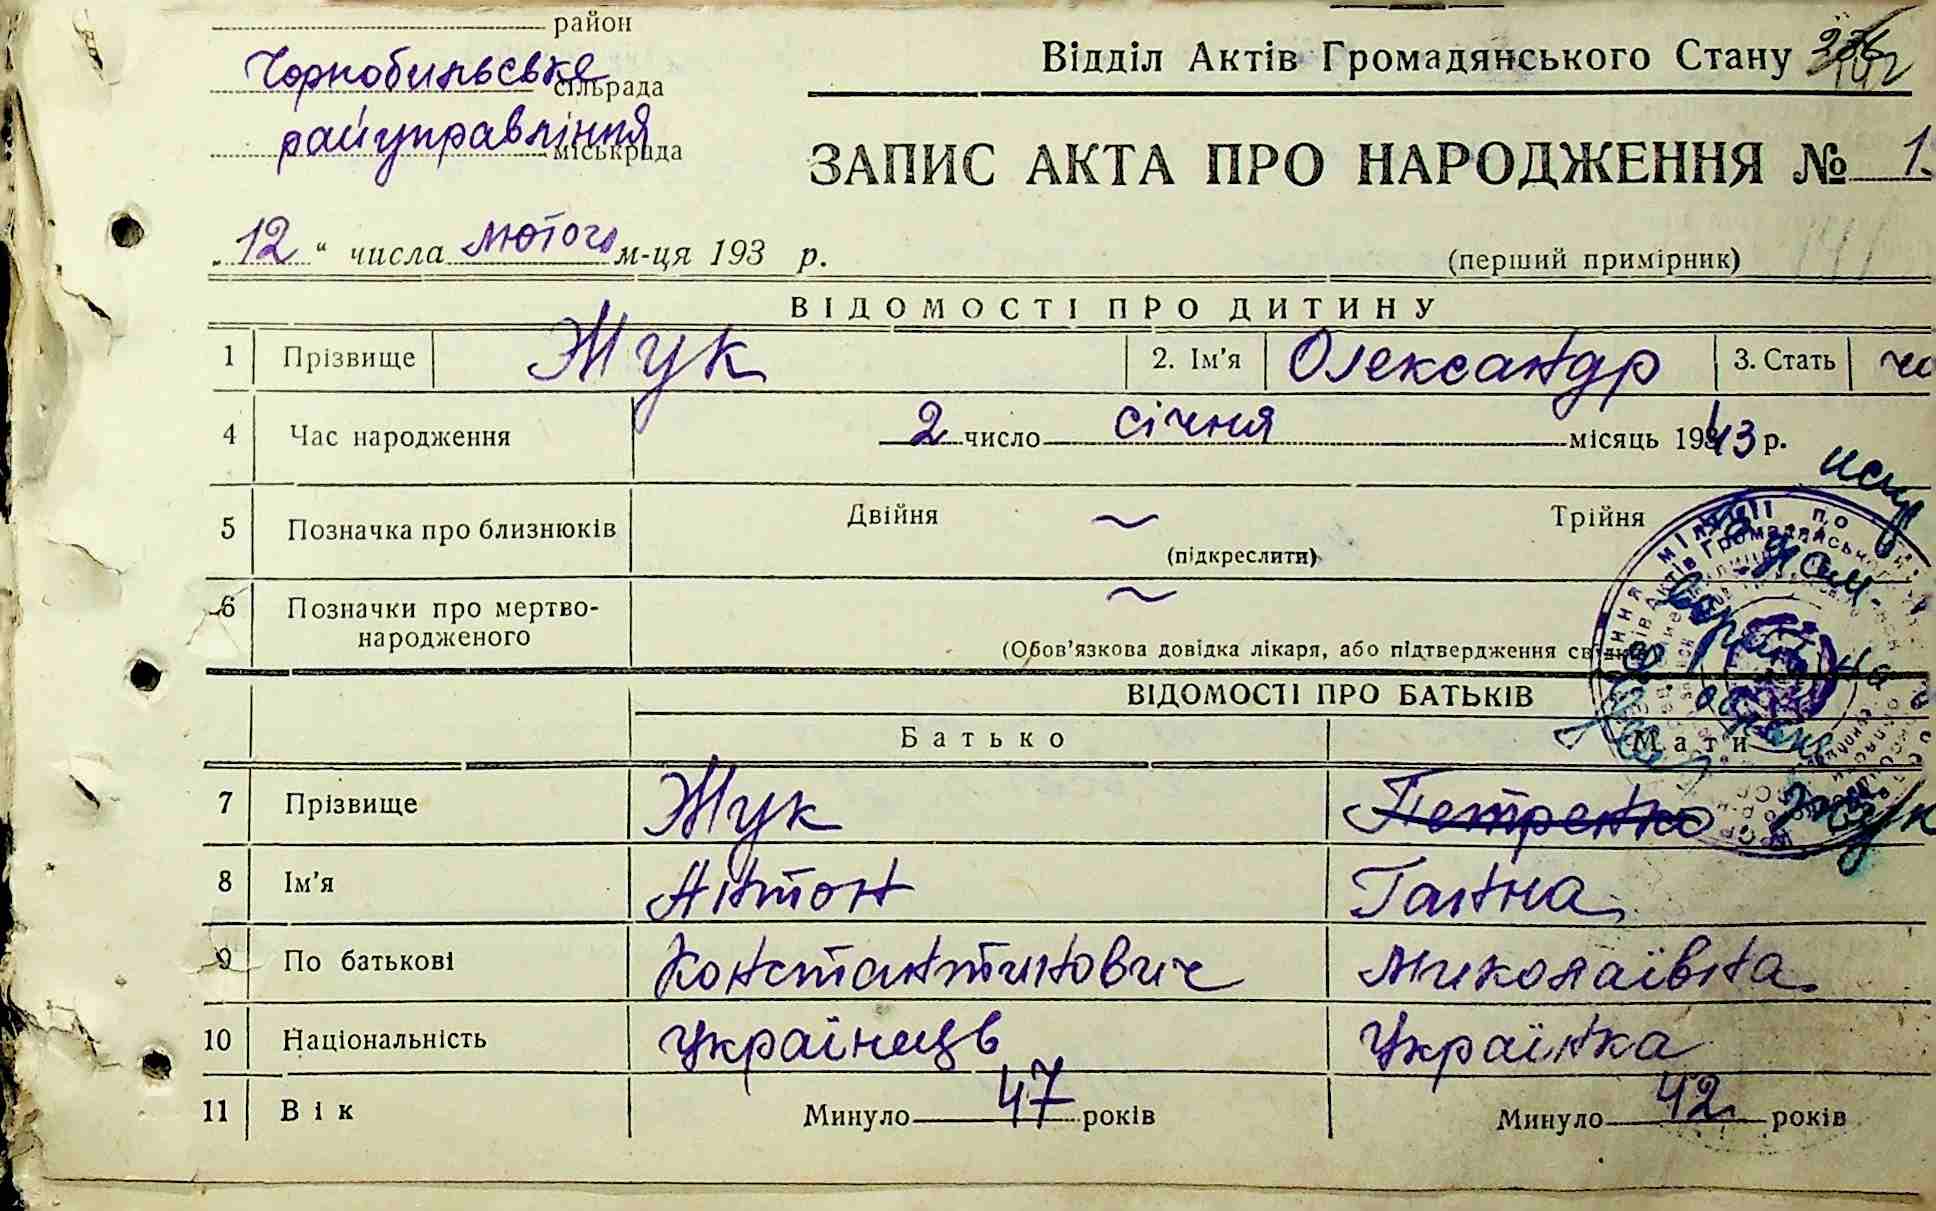 район
Відділ Актів Громадянського Стану
Чорнобильське
сільрада
райуправління
міськрада
ЗАПИС АКТА ПРО НАРОДЖЕННЯ № 1
„12“ числа лютого м-ця 193 р.
(перший примірник)
141
ВІДОМОСТІ ПРО ДИТИНУ
1 Прізвище Жук 2. Ім'я Олександр 3. Стать чо
4 Час народження 2 число січня місяць 1943 р.
5 Позначка про близнюків Двійня ~ Трійня
(підкреслити)
6 Позначки про мертво-
народженого ~
(Обов'язкова довідка лікаря, або підтвердження
ВІДОМОСТІ ПРО БАТЬКІВ
Батько Мати
7 Прізвище Жук Петренко Жук
8 Ім'я Антон Галина
9 По батькові Константинович Миколаївна
10 Національність Українець Українка
11 Вік Минуло 47 років Минуло 42 років